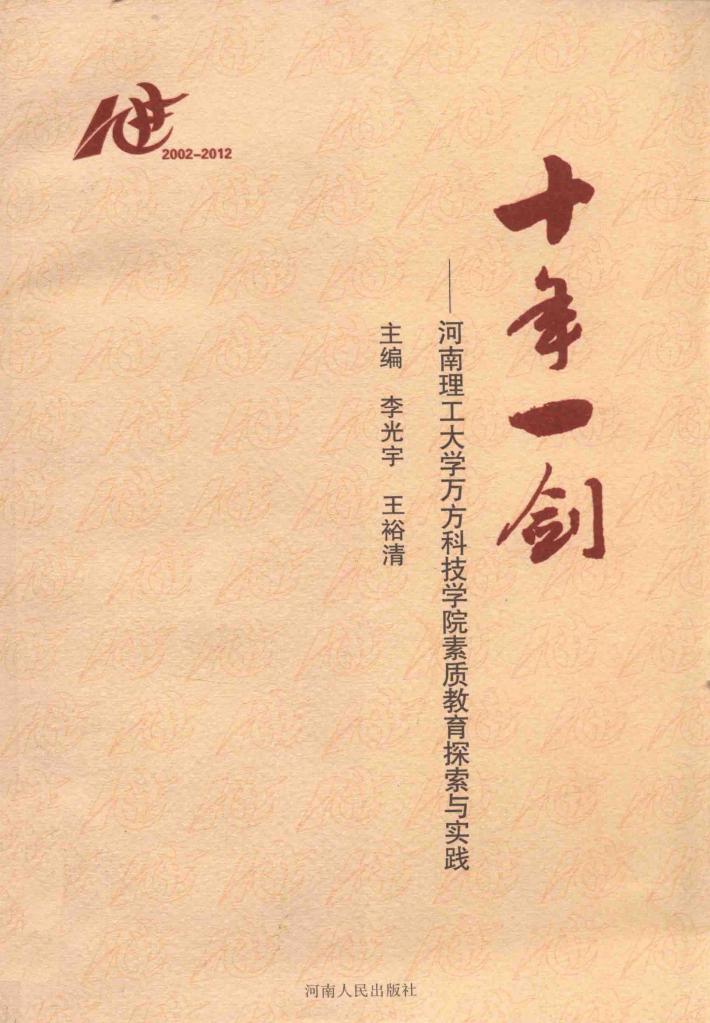 2002-2012
十年一剑
——河南理工大学万方科技学院素质教育探索与实践
主编 李光宇 王裕清
河南人民出版社